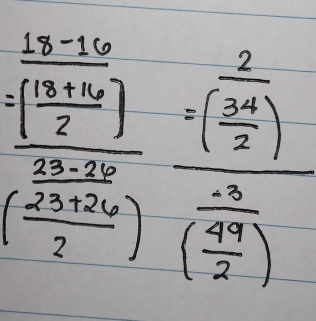 18-16
= (18+16
2)
23-26
(23+26
2)
2
= (34
2)
-3
(49
2)